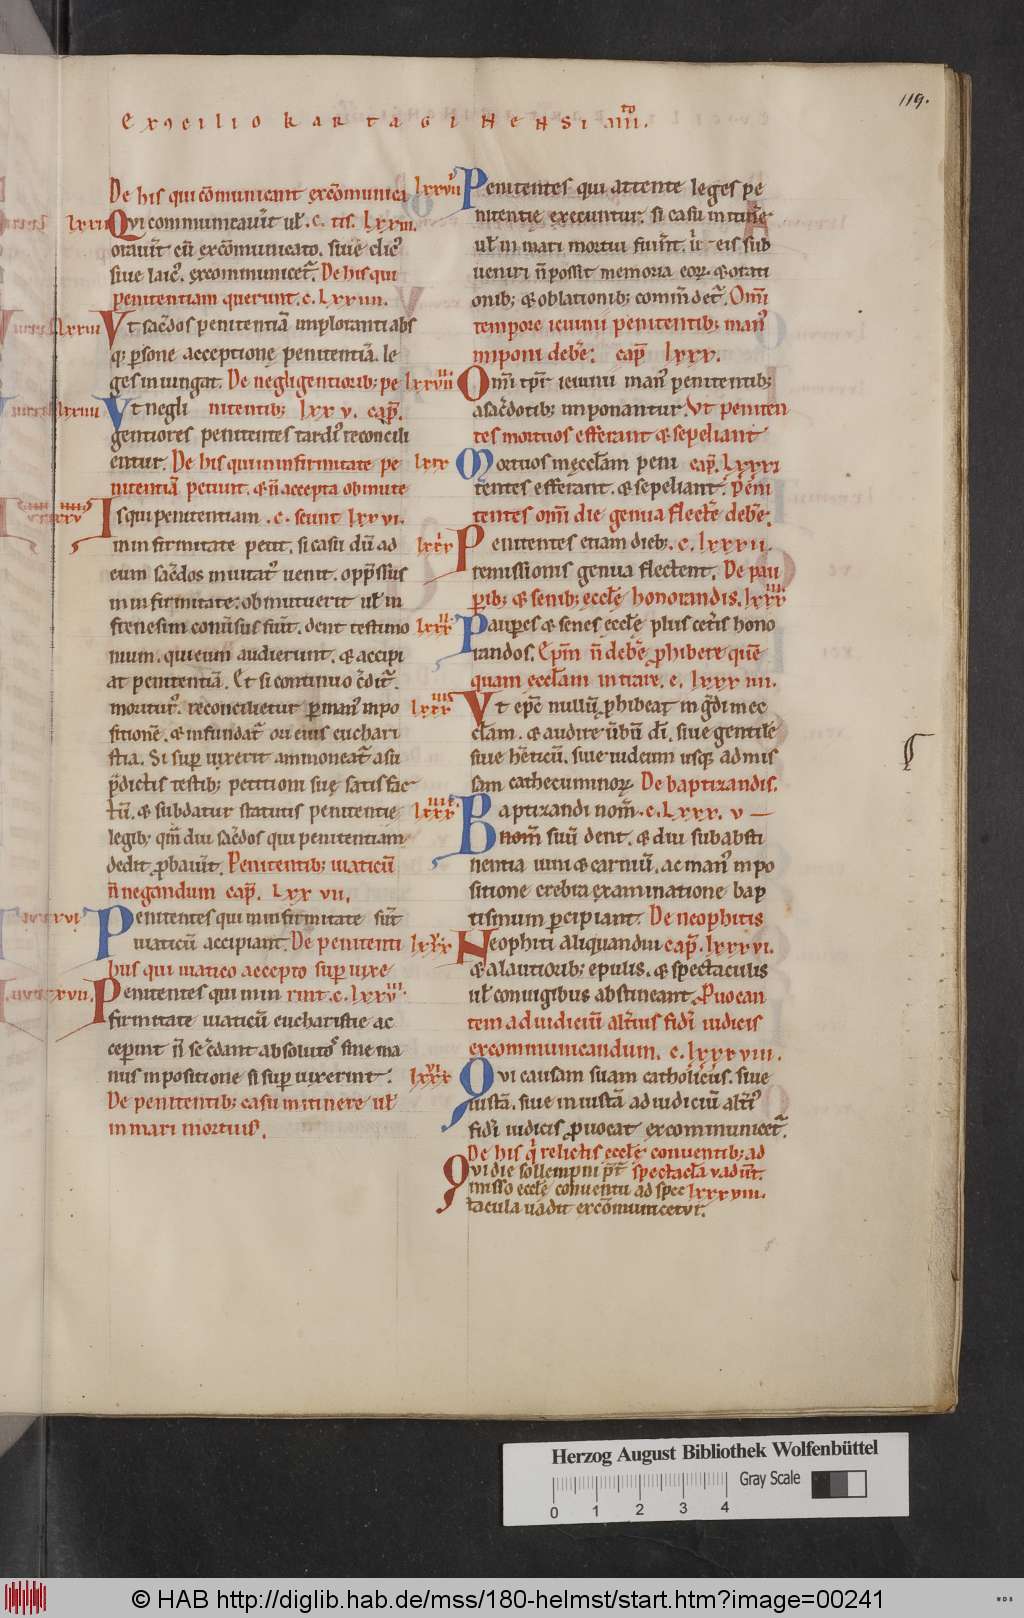 119.
Ex ↄcilio kartaginensi iiii.to
De his qui cōmunicant excōmunica
lxxiii Qvi communicauer̄t ul̄ .c. tis. Lxxiii.
orauer̄t cū excōmunicato. siue cleric᾽
siue laic᾽. excommunicet᷑. De his qui
penitentiam querunt. c. Lxxiiii.
lxxiiii Vt sac̄dos penitentiā imploranti abs
q; ꝑsone acceptione penitentiā. le
ges iniungat. De negligentiorib; pe
Vt negli nitentib; lxxv. cap̄.
gentiores penitentes tardi᾽ reconcili
entur. De his qui in infirmitate pe
nitentiā petiunt. & n̄ accepta obmute
Is qui penitentiam .c. scunt lxxvi.
in infirmitate petit. si casu dū ad
eum sac̄dos inuitat᷑ uenit. opp̄ssus
in infirmitate: obmutuerit ul̄ in
frenesim conuersus fuer̄t. dent testimo
nium. qui eum audierunt. & accipi
at penitentiā. Et si continuo c̄dit᷑.
moritur᾽. reconcilietur ꝑ man᾽ inpo
sitionē. & infundat᷑ ori eius euchari
stia. Si suꝑ uixerit ammoneat᷑ a su
p̄dictis testib; petitioni suę satisfac
tū. & subdatur statutis penitentię
legib; qm̄ diu sac̄dos qui penitentiam
dedit ꝓbauer̄t. Penitentib; uiaticū
n̄ negandum cap̄. Lxxvii.
lxxvi Penitentes qui in infirmitate sunt
uiaticū accipiant. De penitenti
bus qui uiatico accepto suꝑ uixe
lxxvii. Penitentes qui in in rint. c. lxxviii
firmitate uiaticū eucharistie ac
ceperint n̄ se c̄dant absolutos sine ma
nus inpositione si suꝑ uixerint.
De penitentib; casu in itinere ul̄
in mari mortuis.
lxxviii Penitentes qui attente leges pe
nitentię execuntur. si casu in itinere
ul̄ in mari mortui fuer̄t. ubi eis sub
ueniri n̄ possit memoria eoꝝ. & orati
onib; & oblationib; commēdet᷑. Omī
tempore ieiunii penitentib; man᾽
imponi debere. cap̄ lxxx.
Omī tp̄r ieiunii man᾽ penitentib;
a sac̄dotib; imponantur. Vt peniten
tes mortuos efferant & sepeliant
lxxx Mortuos męcclam peni cap̄. Lxxxi
tentes efferant. & sepeliant. peni
tentes omī die genua flectere debere.
lxxxi Penitentes etiam dieb; .c. lxxxii.
remissionis genua flectent. De pau
ꝑib; & senib; eccl̄e honorandis. lxxxiii
lxxxii Pauꝑes & senes eccl̄e plus ceteris hono
randos. Ep̄m n̄ debere ꝓhibere quē
quam eccl̄am intrare. c. lxxxiiii.
lxxxiii Vt ep̄c nullū ꝓhibeat ingredi in ec
cl̄am. & audire uerbū di. siue gentilē
siue hereticū. siue iudeum usq; ad mis
sam cathecuminoꝝ. De baptizandis.
lxxxiiii. Baptizandi nom̄. c. Lxxx. v
nom̄ suū dent. & diu sub absti
nentia uini & carniū. ac man᾽ inpo
sitione crebra examinatione bap
tismum ꝑcipiant. De neophitis
lxxxv Neophiti aliquandiu cap̄. lxxxvi.
& a lautiorib; epulis. & spectaculis
ul̄ coniugibus abstineant. Prouocan
tem ad iudiciū alterius fidei iudicis
excommunicandum. c. lxxxvii.
lxxxvi Qvi causam suam catholicus. siue
iustā. siue iniustā ad iudiciū alteri᾽
fidei iudicis ꝓuocat excommunicet᷑.
De his qui relictis eccl̄e conuentib; ad
Qvi die sollempni p̄t᷑ spectacl̄a vadunt.
misso eccl̄e conuentu ad spec lxxxviii.
tacula uadit excōmunicetvr.
Herzog August Bibliothek Wolfenbüttel
Gray Scale
0 1 2 3 4
© HAB http://diglib.hab.de/mss/180-helmst/start.htm?image=00241